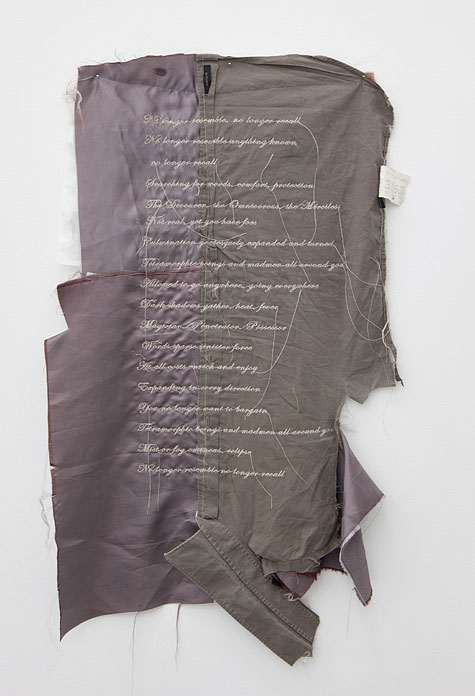 No longer resemble, no longer recall
No longer resemble anything known
no longer recall
Searching for words, comfort, protection
The Devourer, the Omnivorous, the Merciless
Not real, yet you have foes
Culmination grotesquely expanded and turned
Tetramorphic beings and madmen all around you
Allowed to go anywhere, going everywhere
Dark shadows gather, heat, fever
Magician, Penetrator, Possessor
Words sparse sinister force
At all costs enrich and enjoy
Expanding in every direction
You no longer want to bargain
Tetramorphic beings and madmen all around y
Mist or fog ominous, eclipse
No longer resemble no longer recall